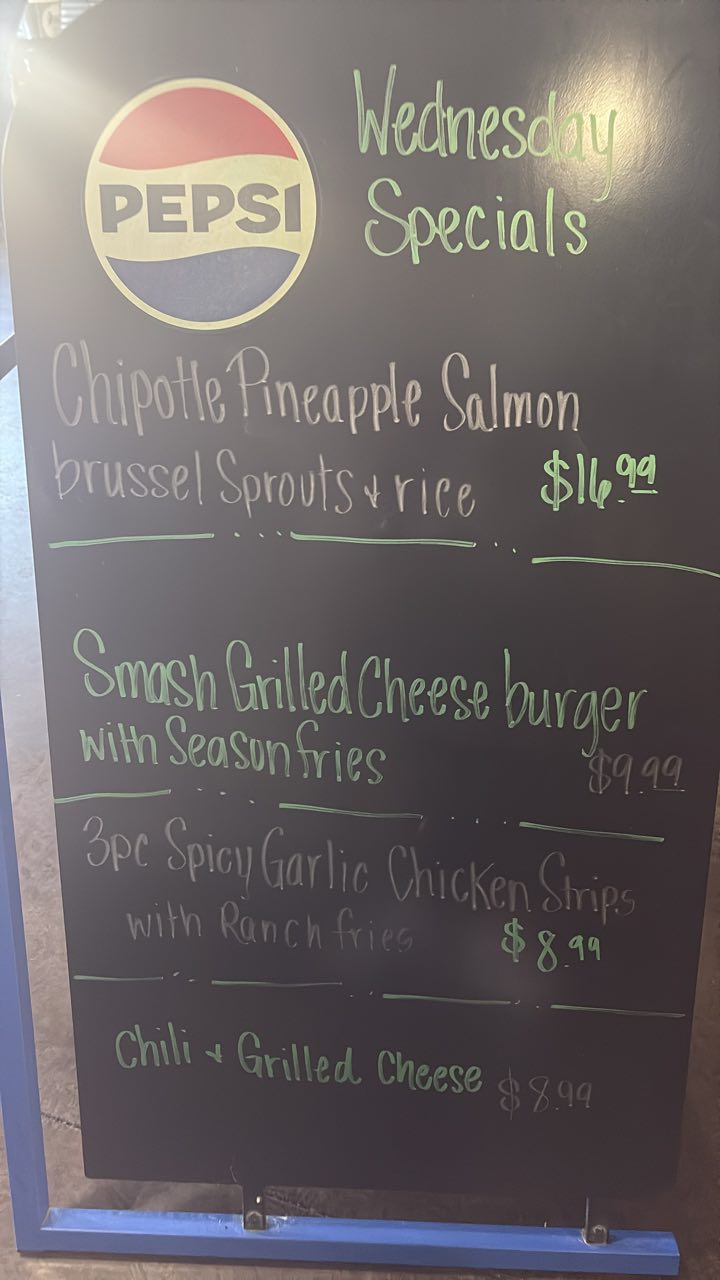 PEPSI
Wednesday
Specials
Chipotle Pineapple Salmon
brussel Sprouts & rice $16.99
Smash Grilled Cheese burger
with Season fries $9.99
3pc Spicy Garlic Chicken Strips
with Ranch fries $8.99
Chili & Grilled Cheese $8.99